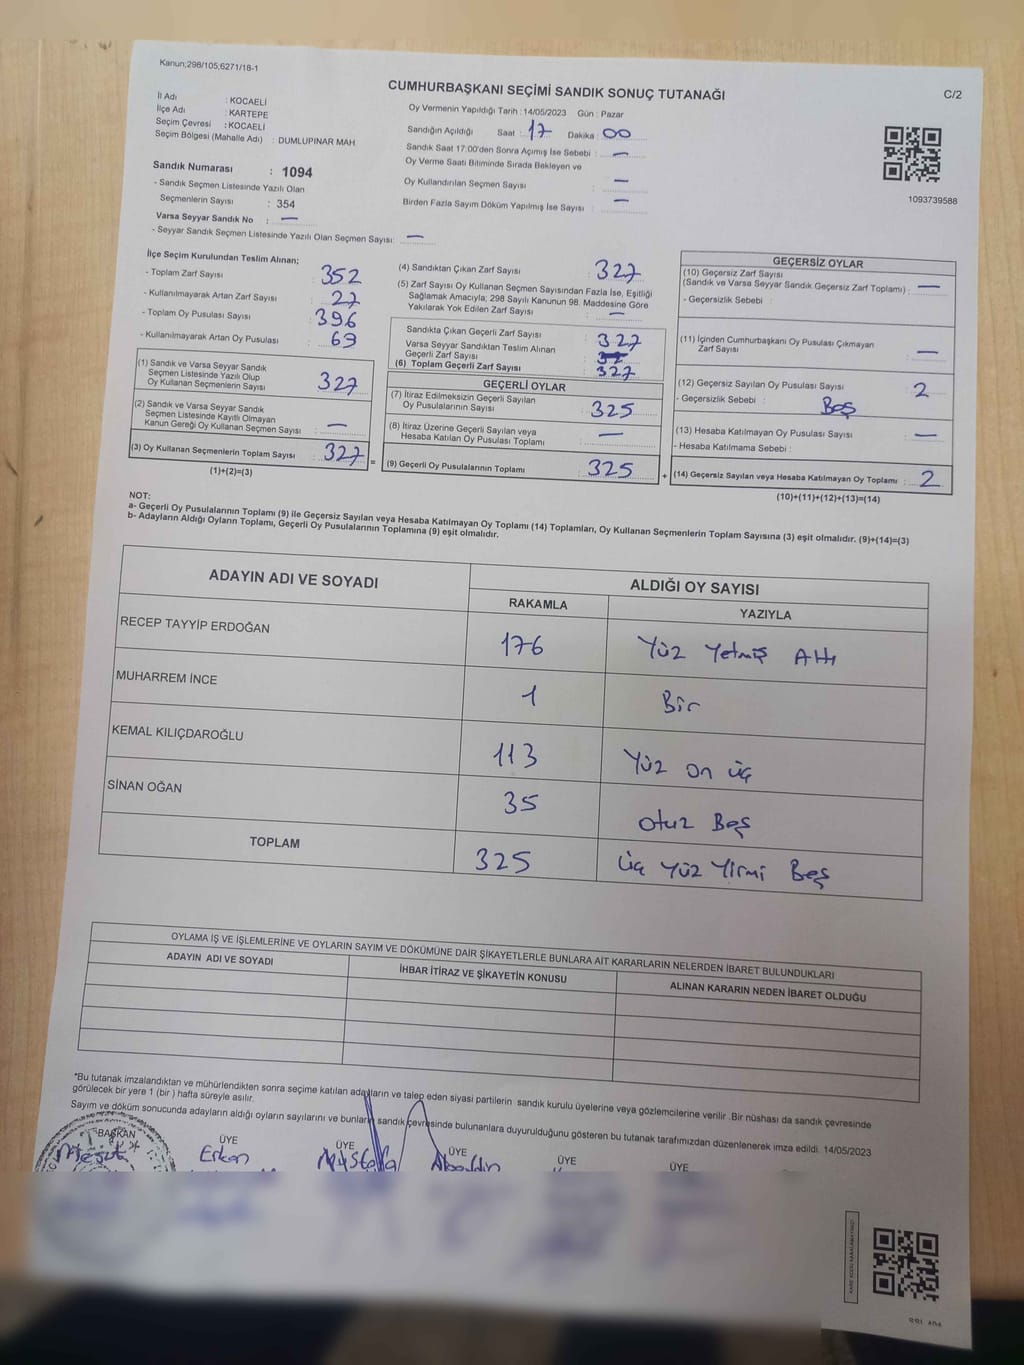 Kanun;298/105,6271/18-1
CUMHURBAŞKANI SEÇİMİ SANDIK SONUÇ TUTANAĞI
C/2
İl Adı : KOCAELİ
İlçe Adı : KARTEPE
Seçim Çevresi : KOCAELİ
Seçim Bölgesi (Mahalle Adı) : DUMLUPINAR MAH
Sandık Numarası : 1094
- Sandık Seçmen Listesinde Yazılı Olan
Seçmenlerin Sayısı : 354
Varsa Seyyar Sandık No : —
- Seyyar Sandık Seçmen Listesinde Yazılı Olan Seçmen Sayısı: —
Oy Vermenin Yapıldığı Tarih : 14/05/2023 Gün : Pazar
Sandığın Açıldığı Saat : 17 Dakika : 00
Sandık Saat 17:00'den Sonra Açımış İse Sebebi : —
Oy Verme Saati Bitiminde Sırada Bekleyen ve
Oy Kullandırılan Seçmen Sayısı : —
Birden Fazla Sayım Döküm Yapılmış İse Sayısı : —
1093739588
İlçe Seçim Kurulundan Teslim Alınan;
- Toplam Zarf Sayısı : 352
- Kullanılmayarak Artan Zarf Sayısı : 27
- Toplam Oy Pusulası Sayısı : 396
- Kullanılmayarak Artan Oy Pusulası : 69
(1) Sandık ve Varsa Seyyar Sandık
Seçmen Listesinde Yazılı Olup
Oy Kullanan Seçmenlerin Sayısı : 327
(2) Sandık ve Varsa Seyyar Sandık
Seçmen Listesinde Kayıtlı Olmayan
Kanun Gereği Oy Kullanan Seçmen Sayısı : —
(3) Oy Kullanan Seçmenlerin Toplam Sayısı : 327
(1)+(2)=(3)
=
(4) Sandıktan Çıkan Zarf Sayısı : 327
(5) Zarf Sayısı Oy Kullanan Seçmen Sayısından Fazla İse, Eşitliği
Sağlamak Amacıyla; 298 Sayılı Kanunun 98. Maddesine Göre
Yakılarak Yok Edilen Zarf Sayısı : —
Sandıkta Çıkan Geçerli Zarf Sayısı : 327
Varsa Seyyar Sandıktan Teslim Alınan
Geçerli Zarf Sayısı :
(6) Toplam Geçerli Zarf Sayısı : 327
GEÇERLİ OYLAR
(7) İtiraz Edilmeksizin Geçerli Sayılan
Oy Pusulalarının Sayısı : 325
(8) İtiraz Üzerine Geçerli Sayılan veya
Hesaba Katılan Oy Pusulası Toplamı : —
(9) Geçerli Oy Pusulalarının Toplamı : 325
+
GEÇERSİZ OYLAR
(10) Geçersiz Zarf Sayısı
(Sandık ve Varsa Seyyar Sandık Geçersiz Zarf Toplamı) : —
- Geçersizlik Sebebi :
(11) İçinden Cumhurbaşkanı Oy Pusulası Çıkmayan
Zarf Sayısı : —
(12) Geçersiz Sayılan Oy Pusulası Sayısı : 2
- Geçersizlik Sebebi : Boş
(13) Hesaba Katılmayan Oy Pusulası Sayısı : —
- Hesaba Katılmama Sebebi :
(14) Geçersiz Sayılan veya Hesaba Katılmayan Oy Toplamı : 2
(10)+(11)+(12)+(13)=(14)
NOT:
a- Geçerli Oy Pusulalarının Toplamı (9) ile Geçersiz Sayılan veya Hesaba Katılmayan Oy Toplamı (14) Toplamları, Oy Kullanan Seçmenlerin Toplam Sayısına (3) eşit olmalıdır. (9)+(14)=(3)
b- Adayların Aldığı Oyların Toplamı, Geçerli Oy Pusulalarının Toplamına (9) eşit olmalıdır.
ADAYIN ADI VE SOYADI ALDIĞI OY SAYISI
RAKAMLA YAZIYLA
RECEP TAYYİP ERDOĞAN 176 Yüz Yetmiş Altı
MUHARREM İNCE 1 Bir
KEMAL KILIÇDAROĞLU 113 Yüz on üç
SİNAN OĞAN 35 otuz Beş
TOPLAM 325 üç Yüz Yirmi Beş
OYLAMA İŞ VE İŞLEMLERİNE VE OYLARIN SAYIM VE DÖKÜMÜNE DAİR ŞİKAYETLERLE BUNLARA AİT KARARLARIN NELERDEN İBARET BULUNDUKLARI
ADAYIN ADI VE SOYADI İHBAR İTİRAZ VE ŞİKAYETİN KONUSU ALINAN KARARIN NEDEN İBARET OLDUĞU
*Bu tutanak imzalandıktan ve mühürlendikten sonra seçime katılan adayların ve talep eden siyasi partilerin sandık kurulu üyelerine veya gözlemcilerine verilir .Bir nüshası da sandık çevresinde
görülecek bir yere 1 (bir ) hafta süreyle asılır.
Sayım ve döküm sonucunda adayların aldığı oyların sayılarını ve bunların sandık çevresinde bulunanlara duyurulduğunu gösteren bu tutanak tarafımızdan düzenlenerek imza edildi. 14/05/2023
BAŞKAN ÜYE ÜYE ÜYE ÜYE ÜYE
Mesut Erkan Mustafa